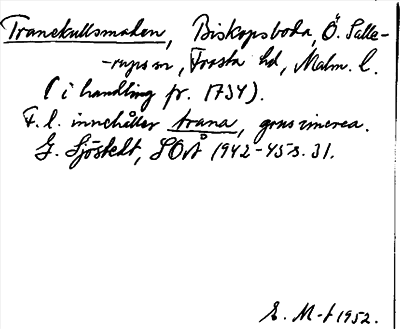 Tranekullsmaden, Biskopsboda, Ö. Salle-
-rups sn, Frosta hd, Malm. l.
(i handling fr. 1734).
F. l. innehåller trana, grus cinerea.
G. Sjöstedt, SOÅ 1942-45 s. 31.
E. M-t 1952.